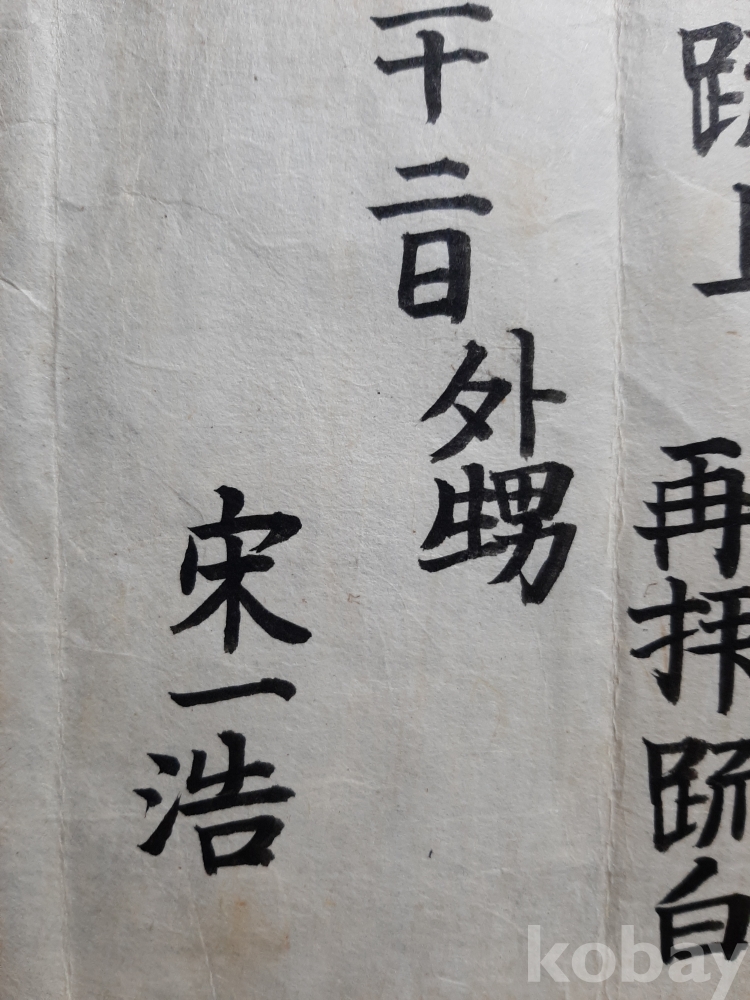 疏上 再拜疏白
十二日外甥
宋一浩
kobay